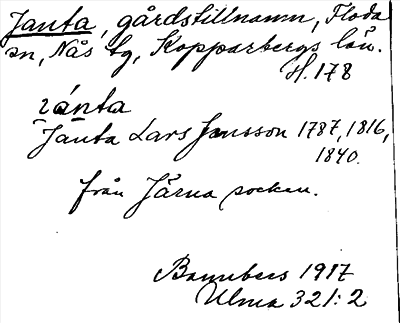 Janta, gårdstillnamn, Floda
sn, Nås tg, Kopparbergs län.
H. 178
i̯ánta
Janta Lars Jansson 1787, 1816,
1840.
från Järna socken.
Bannbers 1917
Ulma 321:2